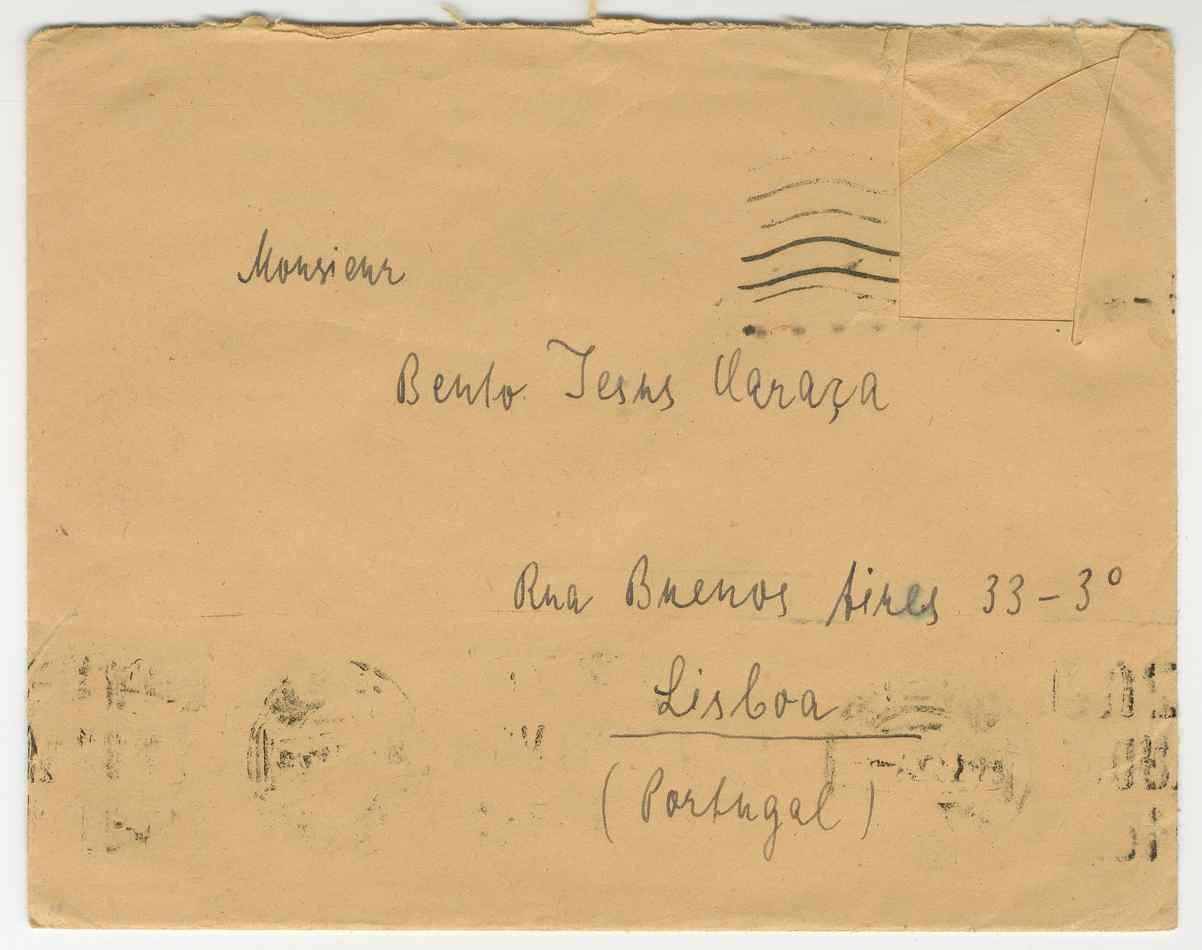 Monsieur
Bento Jesus Caraça
Rua Buenos Aires 33-3º
Lisboa
(Portugal)